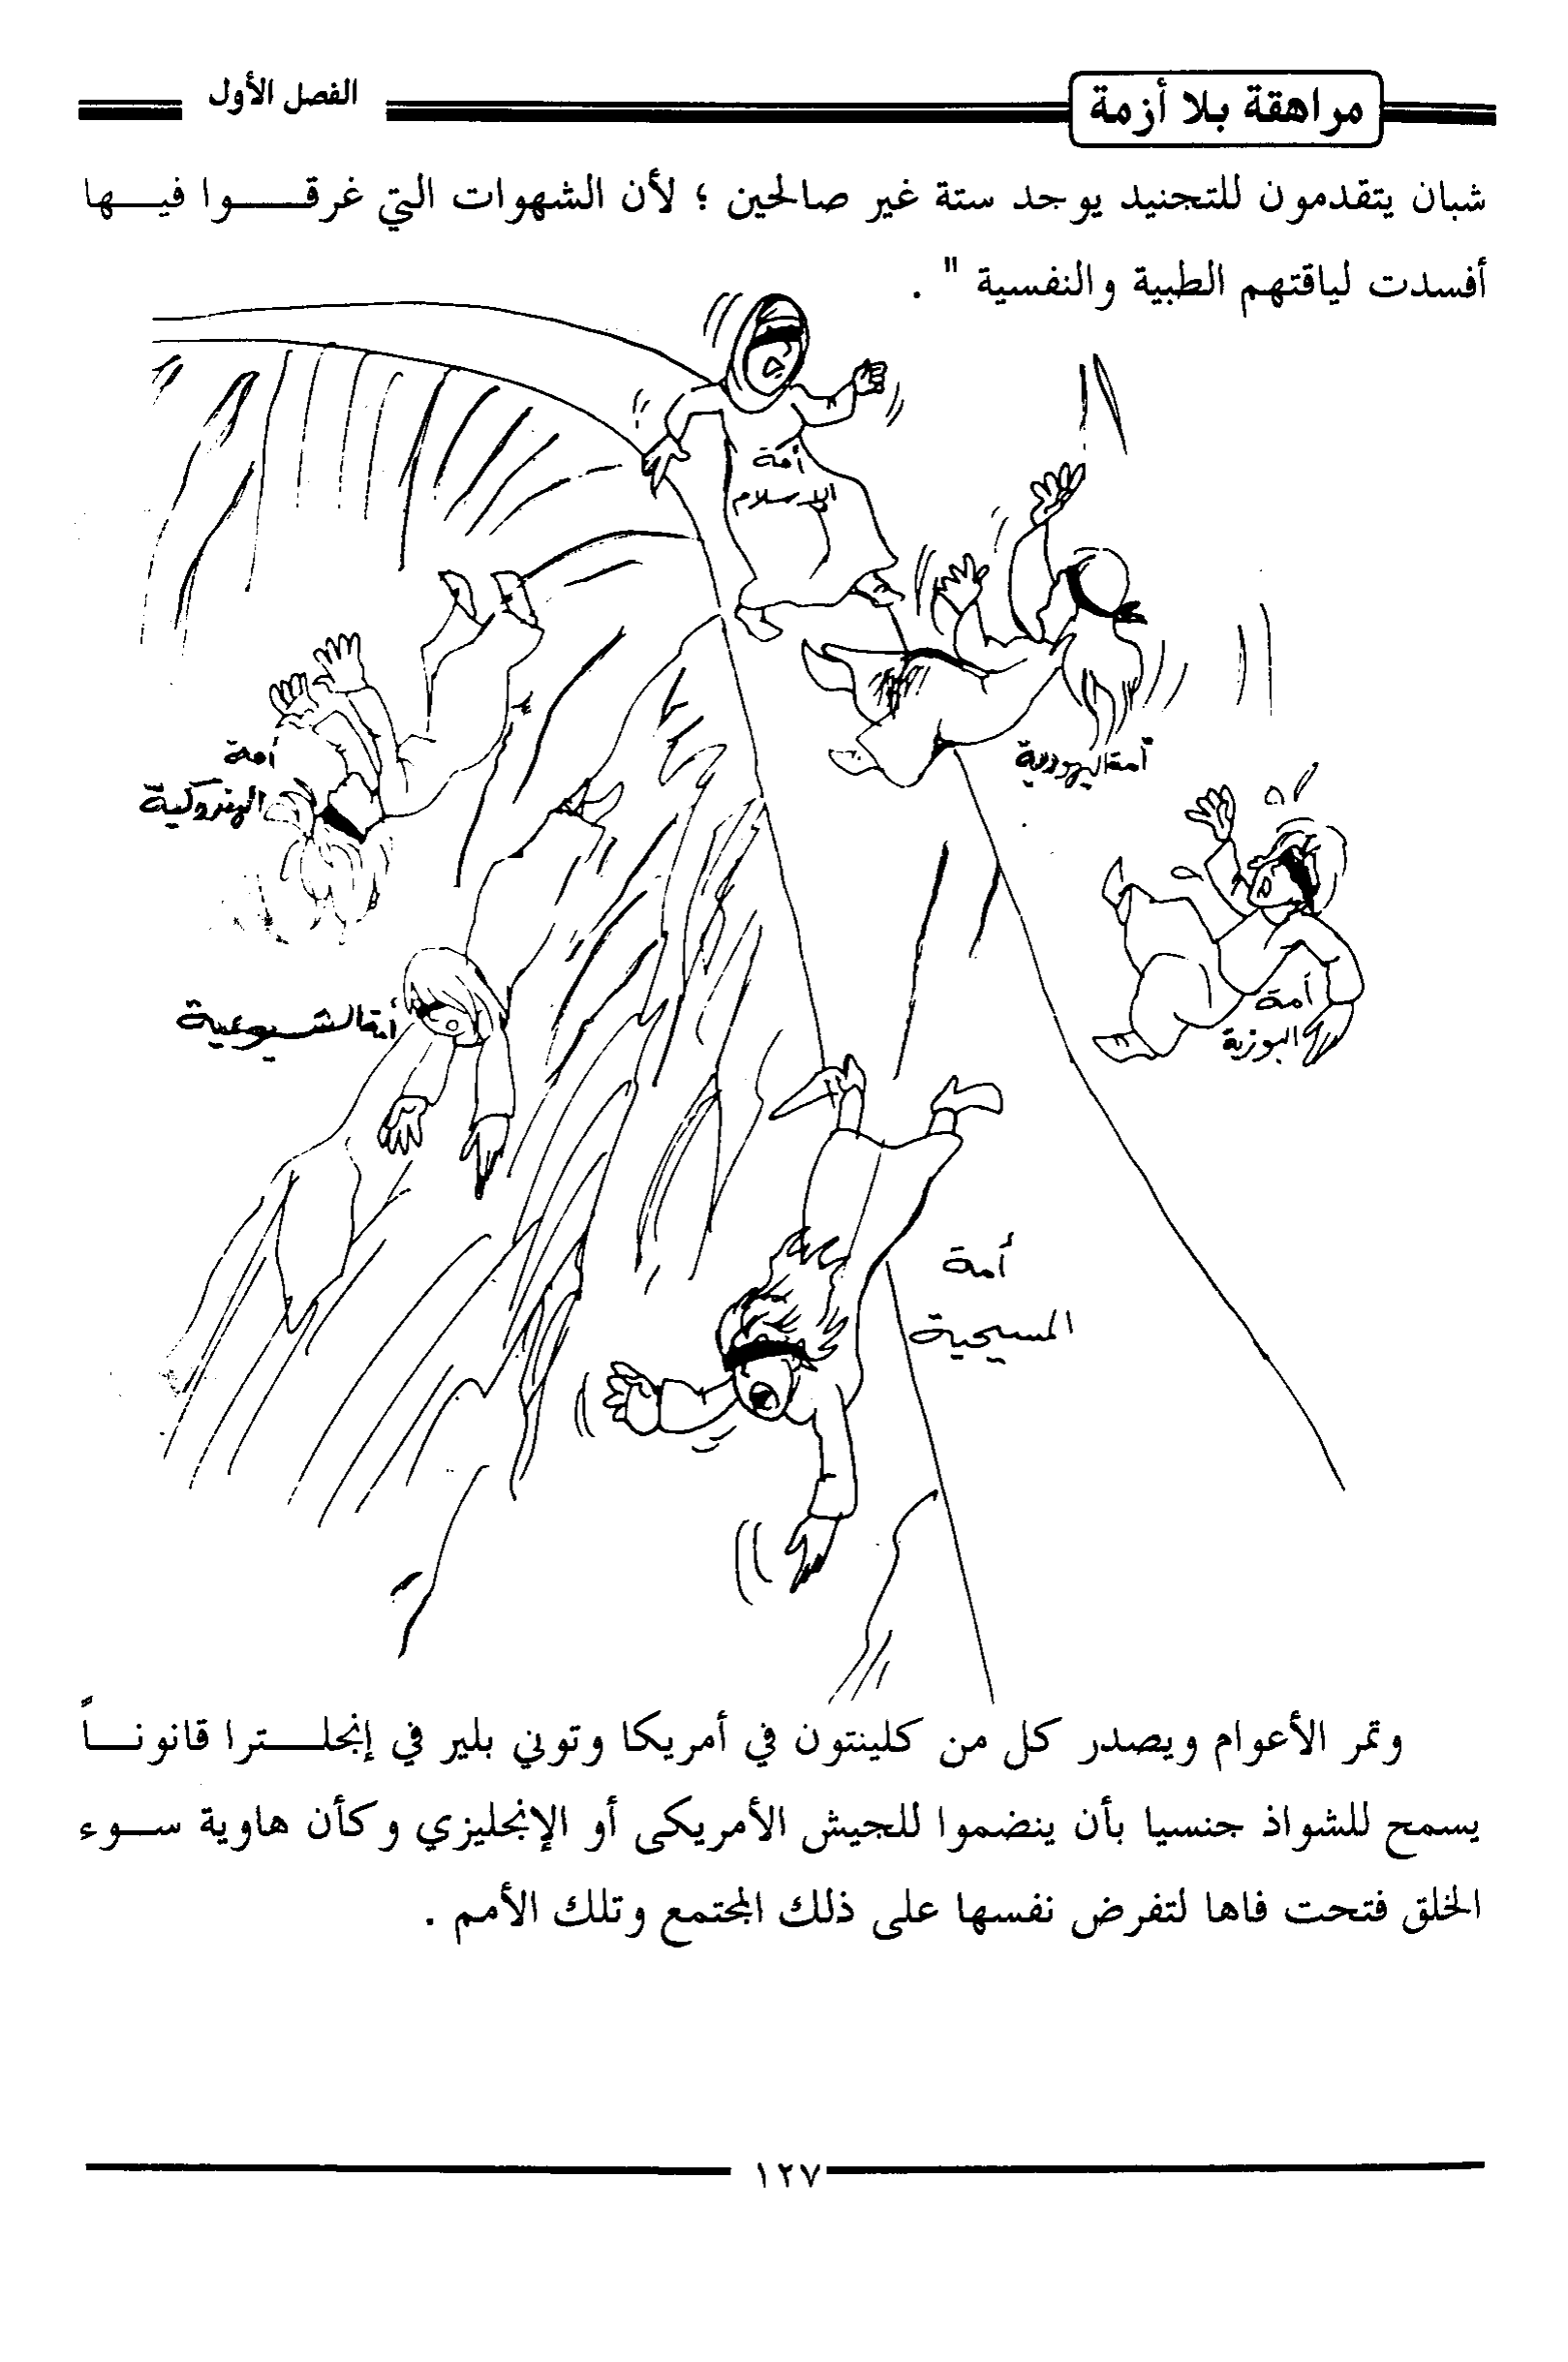 مراهقة بلا أزمة
الفصل الأول
شبان يتقدمون للتجنيد يوجد ستة غير صالحين ؛ لأن الشهوات التي غرقـــــوا فيـــها
أفسدت لياقتهم الطبية والنفسية " .
أمة
الإسلام
أمة اليهودية
أمة
الهندوكية
أمة
البوزية
أمة الشيوعية
أمة
المسيحية
وتمر الأعوام ويصدر كل من كلينتون في أمريكا وتوني بلير في إنجلــــترا قانونــــاً
يسمح للشواذ جنسيا بأن ينضموا للجيش الأمريكى أو الإنجليزي وكأن هاوية ســوء
الخلق فتحت فاها لتفرض نفسها على ذلك المجتمع وتلك الأمم .
١٢٧